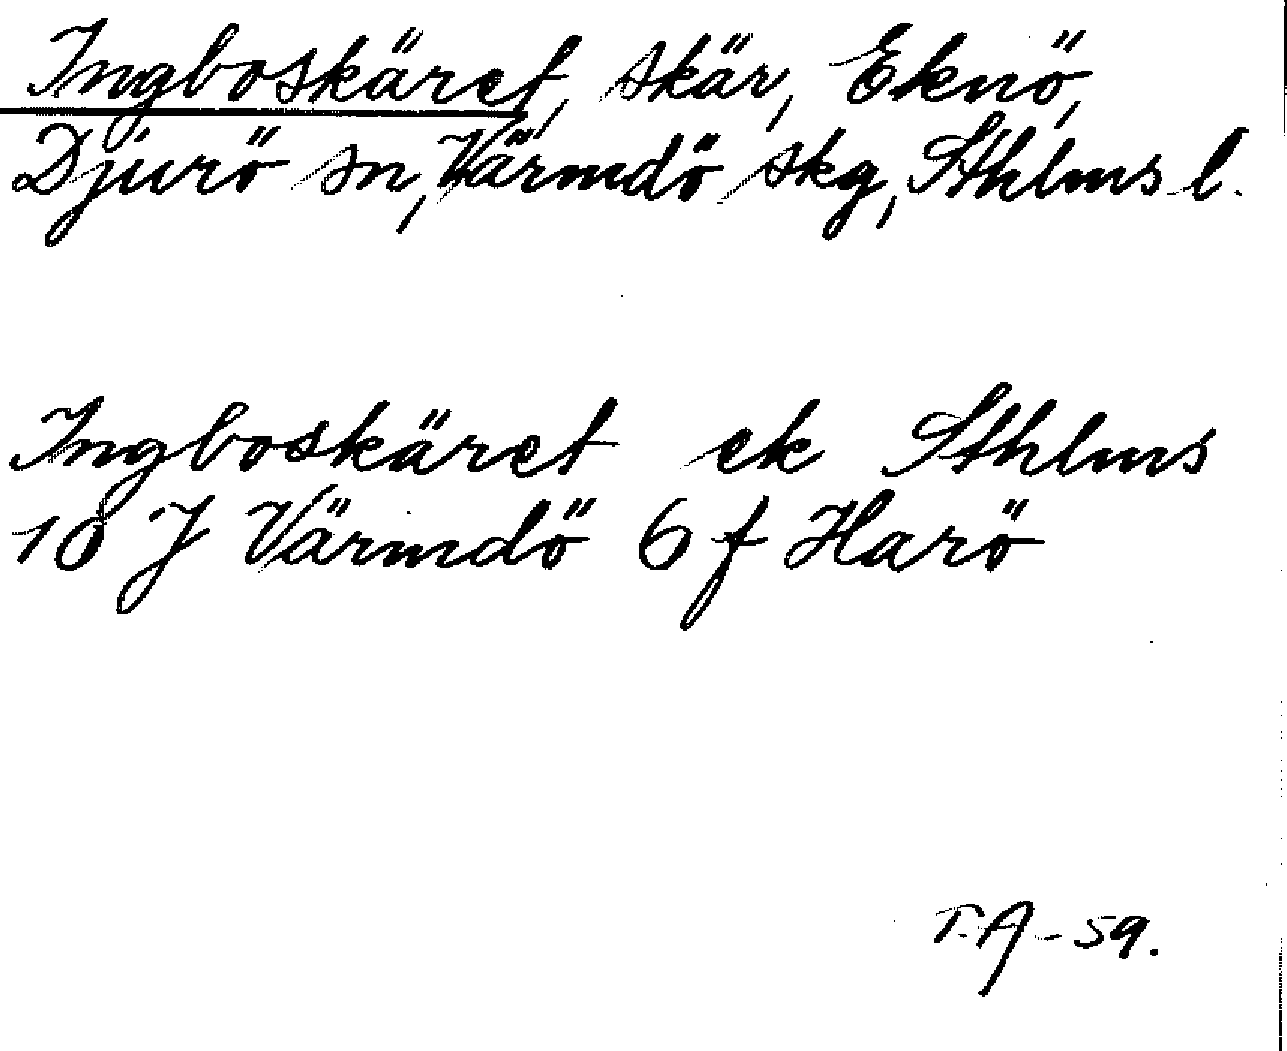 Ingboskäret, skär, Eknö,
Djurö sn, Värmdö skg, Sthlms l.
Ingboskäret ek Sthlms
10 J Värmdö 6 f Harö
T.A - 59.